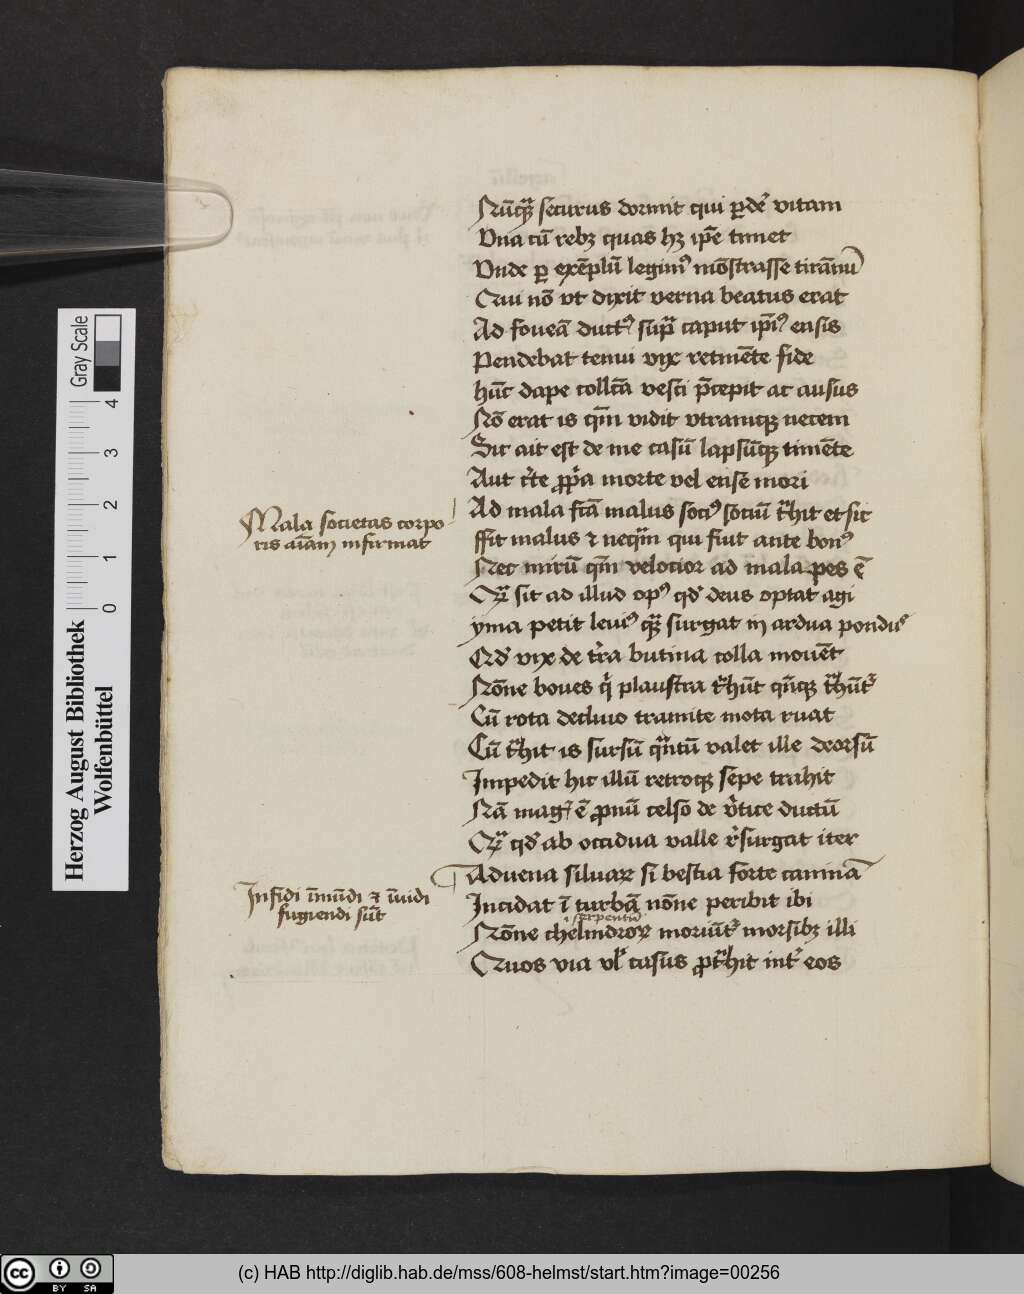 Nūcqȝ securus dormit qui ꝑdeˀ vitam
Vna cū rebȝ quas hȝ ip̄e timet
Vnde ꝑ exēplū legimꝰ mōstrasse tirānū
Cui nō vt dixit verna beatus erat
Ad foueā ductꝰ sup̄ caput ip̄iꝰ ensis
Pendebat tenui vix retinēte fide
hūc dape collcā vesci p̄cepit ac ausus
Nō erat is qm̄ vidit vtramqȝ necem
Sic ait est de me casū lapsūqȝ timēte
Aut morte vel ense mori
Ad mala fcā malus sociꝰ sociū tͣhit et sic
ffit malus ⁊ neqm̄ qui fiut ante bonꝰ
Nec mirū qm̄ velocior ad mala pes ē
Qͣ sit ad illud opꝰ qd̓ deus optat agi
yma petit leuiꝰ qͣȝ surgat in ardua pondꝰ
Qd̓ vix de tr̄a butina colla mouēt
Nōne boues qͥ plaustra tͣhūt tͣhūtˀ
Cū rota decliuo tramite mota ruat
Cū tͣhit is sursū qͣntū valet ille deorsū
Impedit hic illū retroqȝ sepe trahit
Nā magꝭ ē ꝓnū celso de v̓tice ductū
Qͣ qd̓ ab occidua valle rˀsurgat iter
Aduena siluaꝝ si bestia forte caninā
Incidat ī turbā nōne peribit ibi
i serpentiū
Nōne chelindroꝝ moriūtˀ morsibȝ illi
Quos via vl̓ casus ꝓtͣhit intˀ eos
Mala societas corpo
ris aīam infirmat
Infidi īmūdi ⁊ īuidi
fugiendi sūt
Gray Scale
0 1 2 3 4
Herzog August Bibliothek
Wolfenbüttel
cc BY SA
(c) HAB http://diglib.hab.de/mss/608-helmst/start.htm?image=00256